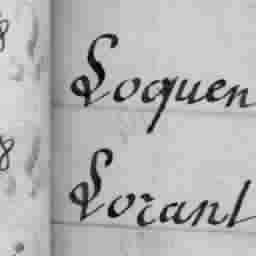 8 Loquen
8 Lorant